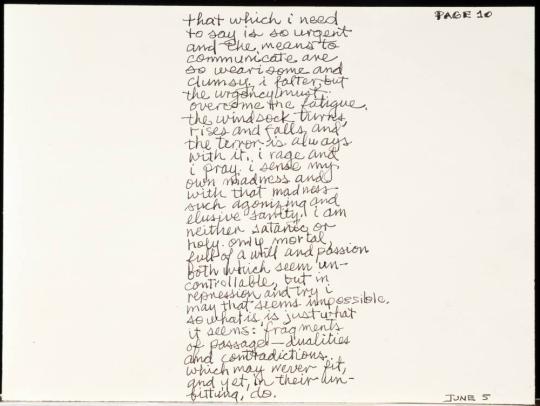 PAGE 10
that which i need
to say is so urgent
and the means to
communicate are
so wearisome and
clumsy. i falter, but
the urgency must
overcome the fatigue.
the windsock turns,
rises and falls, and
the terror is always
with it. i rage and
i pray. i sense my
own madness and
with that madness
such agonizing and
elusive sanity. i am
neither satanic or
holy. only mortal,
full of a will and passion
both which seem un-
controllable, but in
repression and try i
may that seems impossible.
so what is, is just what
it seems: fragments
of passage—dualities
and contradictions.
which may never fit,
and yet, in their un-
fitting, do.
JUNE 5